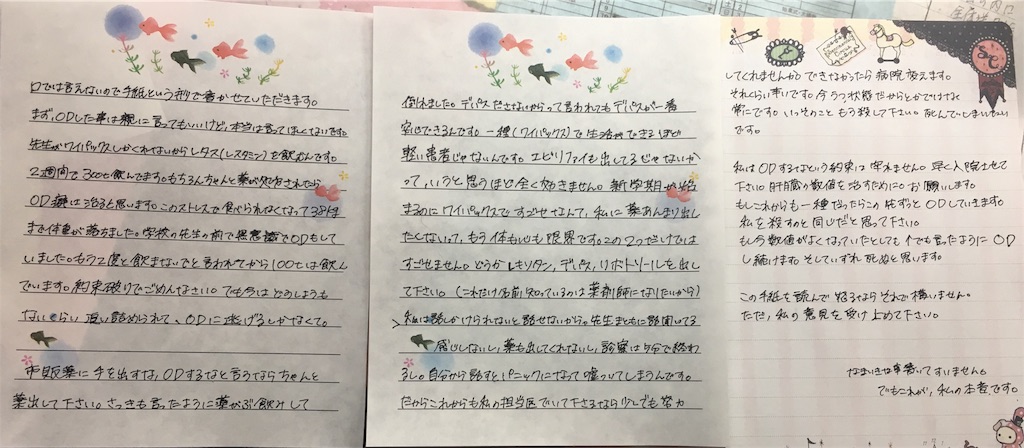 口では言えないので手紙という形で書かせていただきます。
まず、ODした事は親に言ってもいいけど、本当は言ってほしくないです。
先生がワイパックスしかくれないからレタス(レスタミン)を飲むんです。
2週間で300t飲んでます。もちろんちゃんと薬が処方されてたら
OD癖は治ると思います。このストレスで食べられなくなって38kg
まで体重が落ちました。学校の先生の前で無意識でODもして
いました。もう2度と飲まないでと言われてから100tは飲ん
でいます。約束破りでごめんなさい。でも今はどうしようも
ないくらい追い詰められて、ODに逃げるしかなくて。
市販薬に手を出すな、ODするなと言うならちゃんと
薬出して下さい。さっきも言ったように薬がぶ飲みして
倒れました。デパス出さないからって言われてもデパスが一番
安心できるんです。一種(ワイパックス)で生活できるほど
軽い患者じゃないんです。エビリファイも出してるじゃないか
って、いうと思うけど全く効きません。新学期が始
まるのにワイパックスですごせなんて、私に薬あんまり出し
たくないって、もう体も心も限界です。この2つだけでは
すごせません。どうかレキソタン、デパス、リボトリールを出し
て下さい。(これだけ名前知っているのは薬剤師になりたいから)
私は話しかけられないと話せないから。先生まともに話聞いてる
感じしないし、薬も出してくれないし、診察は5分で終わ
るし。自分から話すとパニックになって嘘ついてしまうんです。
だからこれからも私の担当医でいて下さるなら少しでも努力
してくれませんか?できなかったら病院変えます。
それくらい辛いです。今うつ状態だからとかではなく
常にです。いっそのこともう殺して下さい。死んでしまいたい
です。
私はODするなという約束は守れません。早く入院させて
下さい。肝臓の数値を治すために。お願いします。
もしこれからも一種だったらこの先ずっとODしていきます。
私を殺すのと同じだと思って下さい。
もし今数値がよくなっていたとしても何度でも言ったようにOD
し続けます。そしていずれ死ぬと思います。
この手紙を読んで怒るならそれで構いません。
ただ、私の意見を受け止めて下さい。
なまいきな事書いてすいません。
でもこれが、私の本音です。